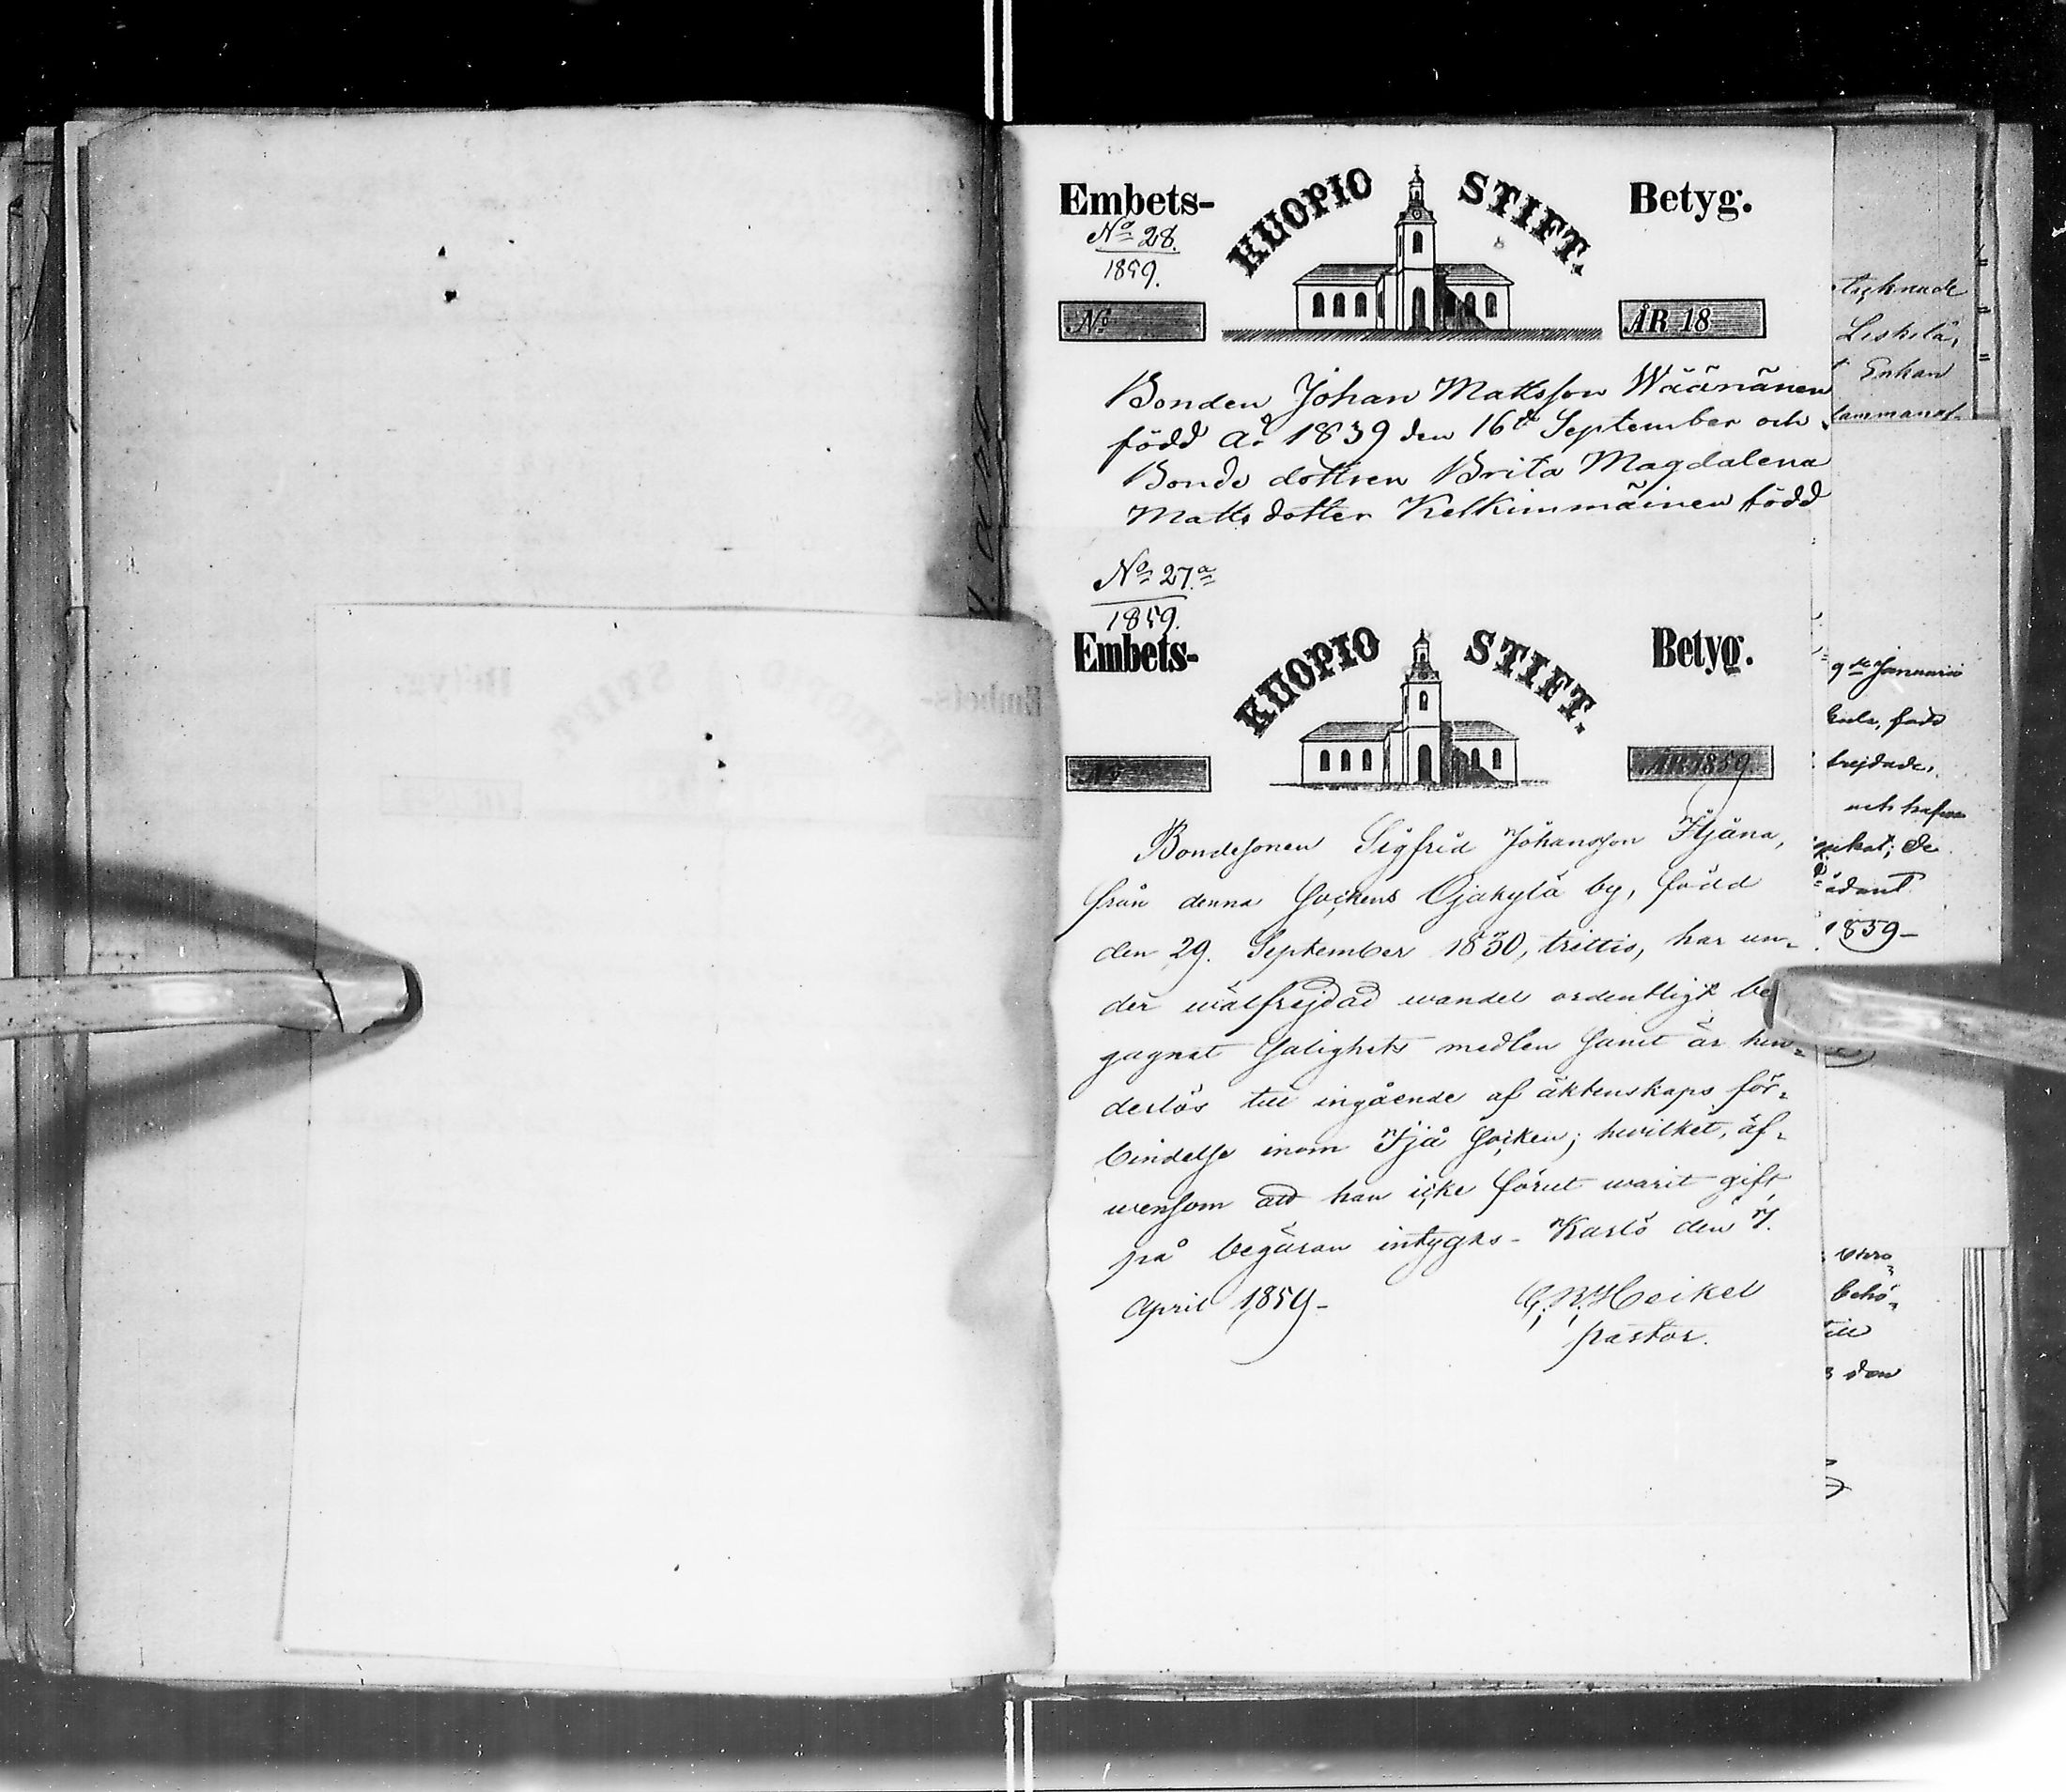 Embets- KUOPIO STIFT. Betyg.
No 28.
1859.
No ÅR 18
Bonden Johan Mattsson Wäänänen
född år 1839 den 16de September och
Bonde dottren Brita Magdalena
Matts dotter Kelkimmäinen född
No 27.a
1859.
Embets- KUOPIO STIFT. Betyg.
No ÅR 1859
Bondesonen Sigfrid Johansson Hjåna,
från denna Sockens Ojakylä by, född
den 29. September 1830, trettio, har un-
der wälfrejdad wandel ordentligt be
gagnat Salighets medlen samt är hin-
derlös till ingående af äktenskaps för-
bindelse inom Ijå Socken; hwilket, äf-
wensom att han icke förut warit gift,
på begäran intygas - Karlö den 7.
April 1859-
Heikel
pastor.
Enkan
9de Januari
frejdade,
och hafwa
1859-
behö-
till